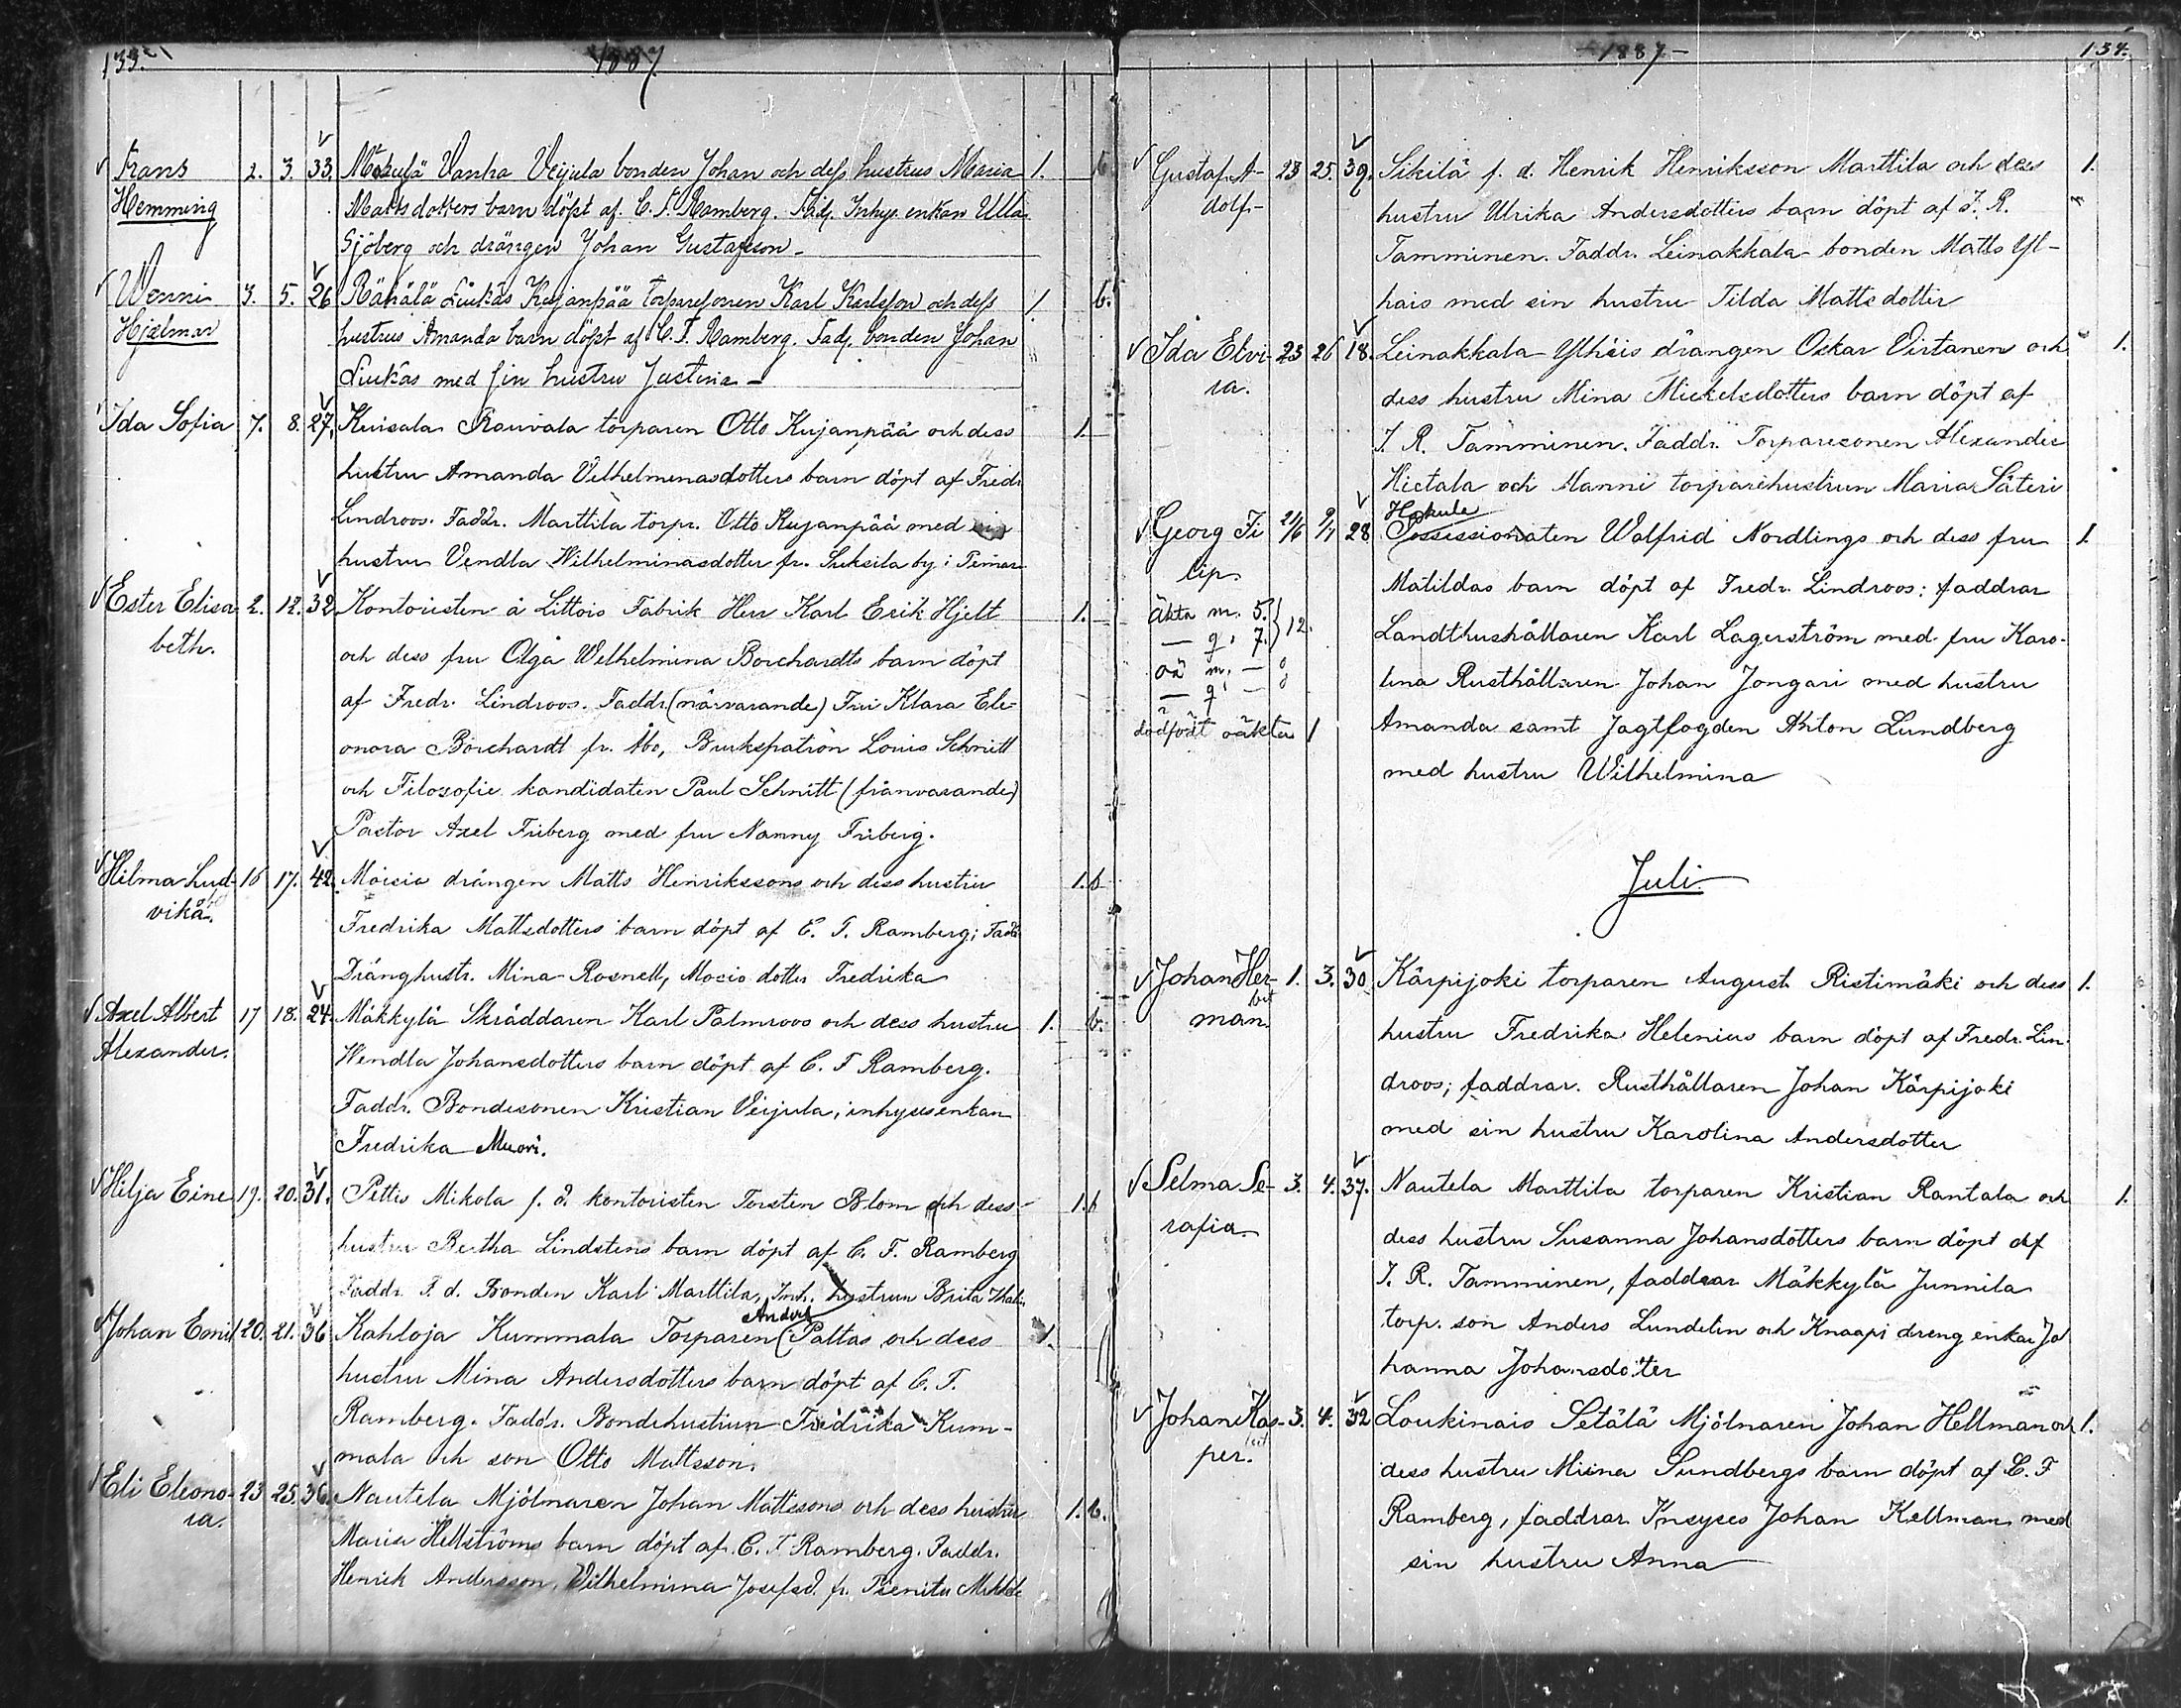 133.
1887
Frans 2. 3. 33. Mokulä Vanha Veijula bonden Johan och dess hustrus Maria 1. b
Hemming Mattsdotters barn döpt af C. F. Ramberg. Fad. Inhys. enkan Ulla
Sjöberg och drängen Johan Gustafsson
Wenni 3. 5. 26 Rähälä Liukas Kujanpää torparesonen Karl Karlsson och dess 1. b.
Hjalmar hustrus Amanda barn döpt af C. F. Ramberg. Fad. bonden Johan
Liukas med sin hustru Justina
Ida Sofia 7. 8. 27. Kuisala Rauvala torparen Otto Kujanpää och dess 1.
hustru Amanda Vilhelmenasdotters barn döpt af Fredr.
Lindroos. Faddr. Marttila torpr. Otto Kujanpää med sin
hustru Vendla Wilhelminasdotter fr. Suksila by i Pemar
Ester Elisa- 2. 12. 32. Kontoristen å Littois Fabrik Herr Karl Erik Hjelt 1.
beth. och dess fru Olga Wilhelmina Borchardts barn döpt
af Fredr. Lindroos. Faddr. (närvarande) Fru Klara Ele-
onora Borchardt fr. Åbo, Brukspatron Louis Schnitt
och Filosofie kandidaten Paul Schnitt (frånvarande)
Pastor Axel Friberg med fru Nanny Friberg.
Hilma Lud- 16 17. 42. Moisio drängen Matts Henrikssons och dess hustru 1. b
vika. Fredrika Mattsdotters barn döpt af C. F. Ramberg; Faddr.
Dränghustr. Mina Rosnell, Mocio dotter Fredrika
Axel Albert 17 18. 24. Mäkkylä Skräddaren Karl Palmroos och dess hustru 1. b.
Alexander. Wendla Johansdotters barn döpt af C. F Ramberg.
Faddr. Bondesonen Kristian Veijula, inhysesenkan
Fredrika Muori.
Hilja Eine 19. 20. 31. Pettis Mikola f. d. kontoristen Torsten Blom och dess 1. b
hustru Bertha Lindstens barn döpt af C. F. Ramberg
Faddr. F. d. Bonden Karl Marttila, Inh. hustrun Brita Thalin
Anders
Johan Emil 20. 21. 36 Kahloja Kummala Torparen (Paltas och dess 1.
hustru Mina Andersdotters barn döpt af C. F.
Ramberg. Faddr. Bondehustrun Fredrika Kum-
mala och son Otto Mattsson.
Eli Eleono- 23 25. 36. Nautela Mjölnaren Johan Mattssons och dess hustru 1. b.
ra. Maria Hellströms barn döpt af C. F Ramberg. Faddr.
Henrik Andersson, Wilhelmina Josefsd. fr. Pienitu Mikkola
1887
134.
Gustaf A- 23 25. 39. Sikilä f. d. Henrik Henriksson Marttila och dess 1.
dolf. hustru Ulrika Andersdotters barn döpt af J. R.
Tamminen. Faddr. Leinakkala bonden Matts Yl-
hais med sin hustru Tilda Mattsdotter
Ida Elvi- 23 26 18. Leinakkala Ylhäis drängen Oskar Virtanen och 1.
ra. dess hustru Mina Mickelsdotters barn döpt af
J. R. Tamminen. Faddr. Torparesonen Alexander
Hietala och Manni torparehustrun Maria Säteri
Hakula
Georg Fi- 21/6 9/7 28 Possessionaten Walfrid Nordlings och dess fru 1.
lip. Matildas barn döpt af Fredr. Lindroos: faddrar
Äkta m. 5. } 12. Landthushållaren Karl Lagerström med fru Karo-
— q. 7.
oä m. — 0 lina Rusthållaren Johan Jongari med hustru
— q. — 0
dödfödt oäkta 1 Amanda samt Jagtfogden Anton Lundberg
med hustru Wilhelmina
Juli
Johan Her- 1. 3. 30 Kärpijoki torparen August Ristimäki och dess 1.
man. hustru Fredrika Helenius barn döpt af Fredr. Lin-
droos; faddrar. Rusthållaren Johan Kärpijoki
med sin hustru Karolina Andersdotter
Selma Se- 3. 4. 37. Nautela Marttila torparen Kristian Rantala och 1.
rafia. dess hustru Susanna Johansdotters barn döpt af
J. R. Tamminen, faddrar Mäkkylä Junnila
torp. son Anders Lundelin och Knaapi dreng enkan Jo
hanna Johansdoter
Johan Kas- 3. 4. 32 Loukinais Setälä Mjölnaren Johan Hellman och 1.
per. dess hustru Miina Sundbergs barn döpt af C. F
Ramberg, faddrar Inhyses Johan Kellman med
sin hustru Anna